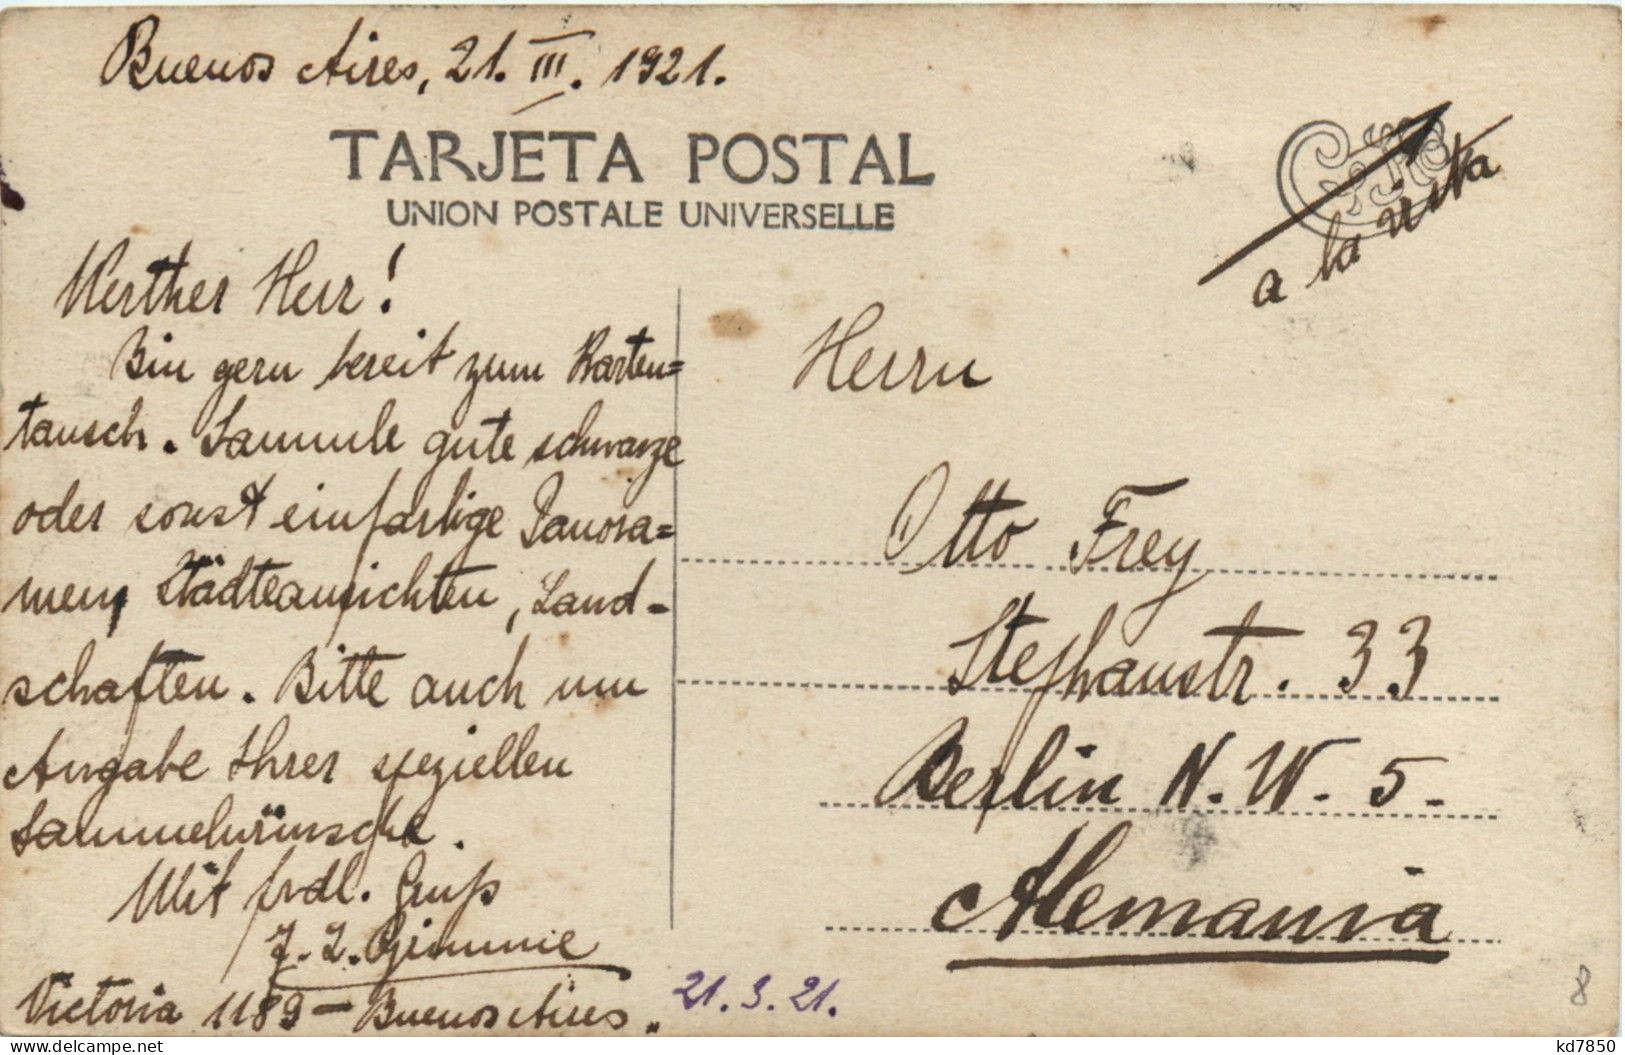 Buenos Aires, 21. III. 1921.
TARJETA POSTAL
UNION POSTALE UNIVERSELLE
a la vista
Werther Herr!
Bin gern bereit zum Karten=
tausch. Sammle gute schwarze
oder sonst einfarbige Panora=
men, Städteansichten, Land=
schaften. Bitte auch um
Angabe Ihrer speziellen
Sammelwünsche.
Mit frdl. Gruß
Victoria 1189 – Buenos Aires.
21. 3. 21.
Herrn
Otto Frey
Stephanstr. 33
Berlin N. W. 5.
Alemania
8
kd7850